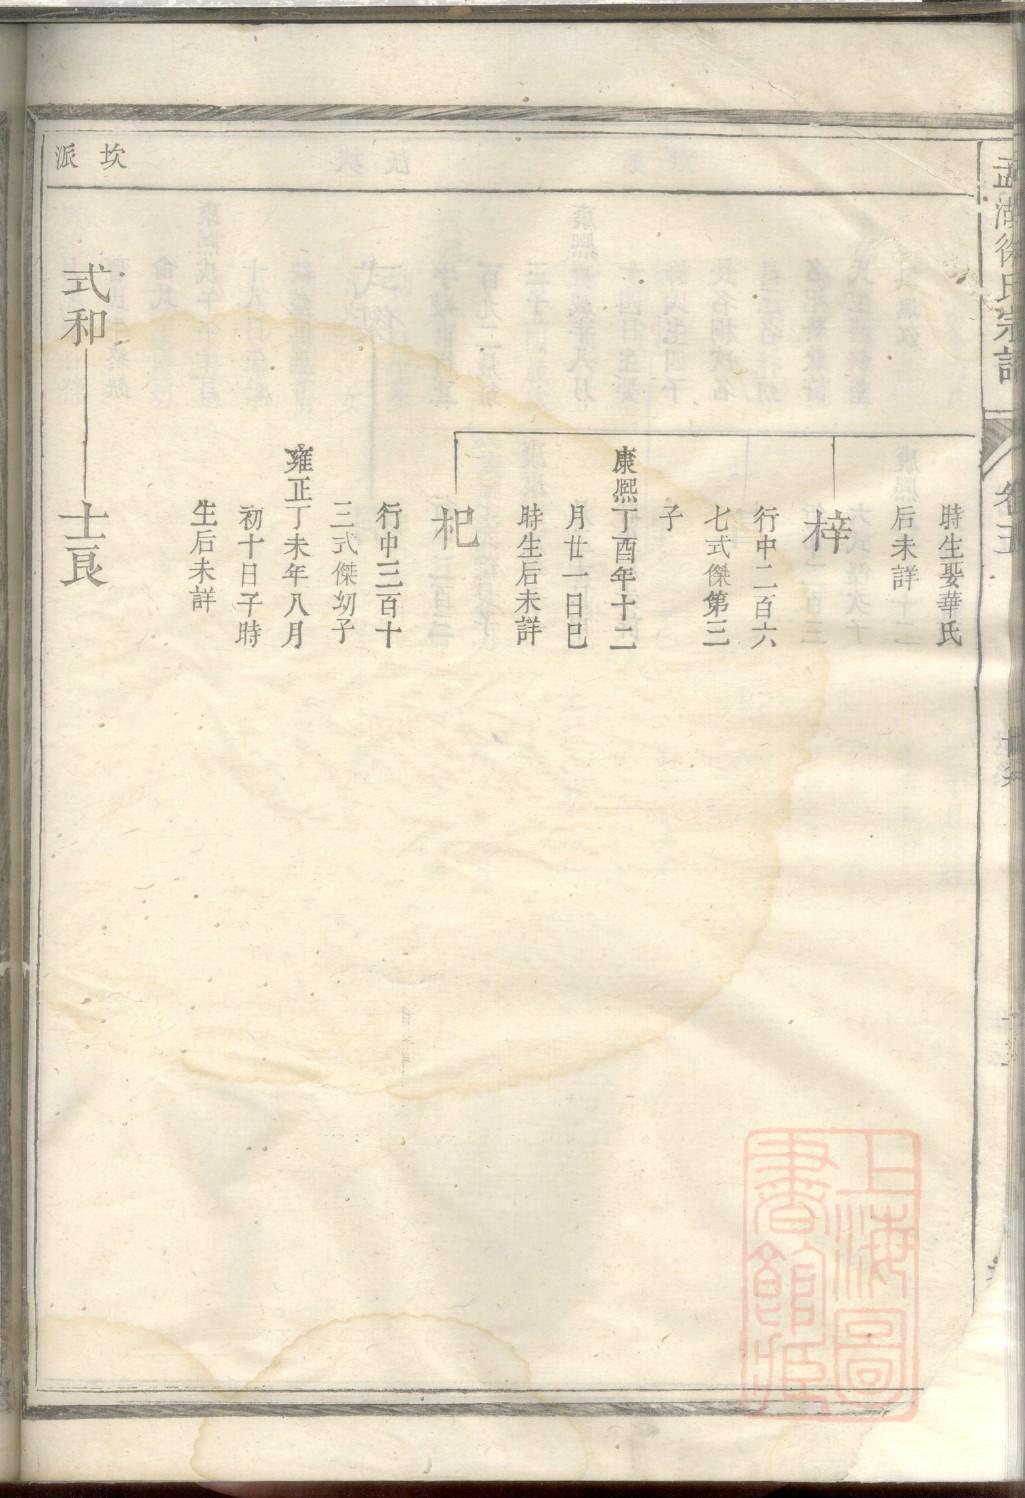 坎派
湖徐氏宗譜
卷五
時生娶華氏
后未詳
梓
行中二百六
七式傑第三
子
康熙丁酉年十二
月廿一日巳
時生后未詳
杞
行中三百十
三式傑㓜子
雍正丁未年八月
初十日子時
生后未詳
式和
士良
上海圖
書館藏